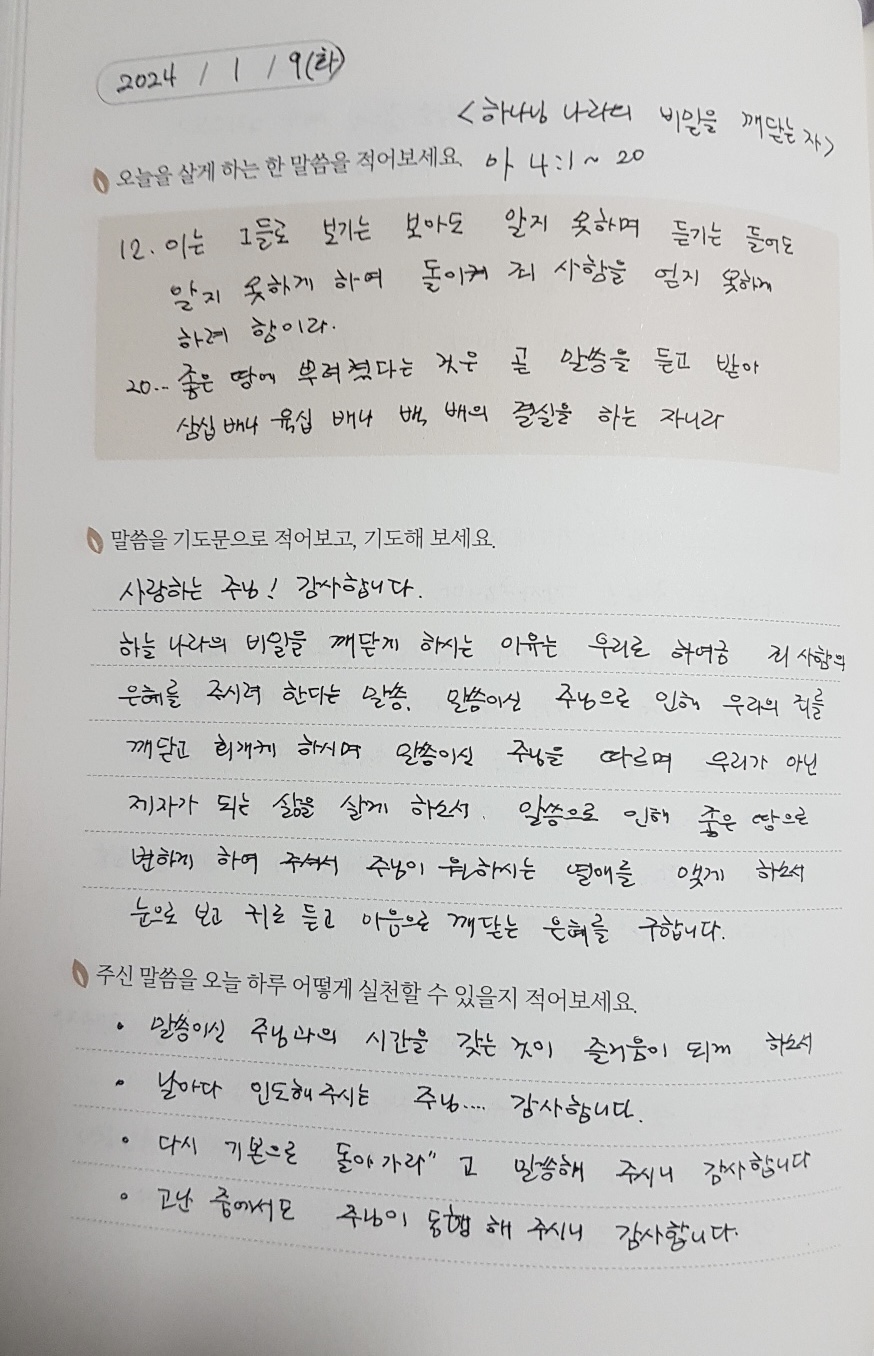 2024 / 1 / 9(화)
<하나님 나라의 비밀을 깨닫는 자>
오늘을 살게 하는 한 말씀을 적어보세요. 막 4:1~20
12. 이는 그들로 보기는 보아도 알지 못하며 듣기는 들어도
알지 못하게 하여 돌이켜 죄 사함을 얻지 못하게
하려 함이라.
20.. 좋은 땅에 뿌려졌다는 것은 곧 말씀을 듣고 받아
삼십 배나 육십 배나 백 배의 결실을 하는 자니라
말씀을 기도문으로 적어보고, 기도해 보세요.
사랑하는 주님! 감사합니다.
하늘 나라의 비밀을 깨닫게 하시는 이유는 우리로 하여금 죄 사함의
은혜를 주시려 한다는 말씀. 말씀이신 주님으로 인해 우리의 죄를
깨닫고 회개케 하시며 말씀이신 주님을 따르며 우리가 아닌
제자가 되는 삶을 살게 하소서. 말씀으로 인해 좋은 땅으로
변하게 하여 주셔서 주님이 원하시는 열매를 맺게 하소서
눈으로 보고 귀로 듣고 마음으로 깨닫는 은혜를 구합니다.
주신 말씀을 오늘 하루 어떻게 실천할 수 있을지 적어보세요.
• 말씀이신 주님과의 시간을 갖는 것이 즐거움이 되게 하소서
• 날마다 인도해 주시는 주님.... 감사합니다.
• 다시 기본으로 돌아가라" 고 말씀해 주시니 감사합니다
• 고난 중에서도 주님이 동행 해 주시니 감사합니다.